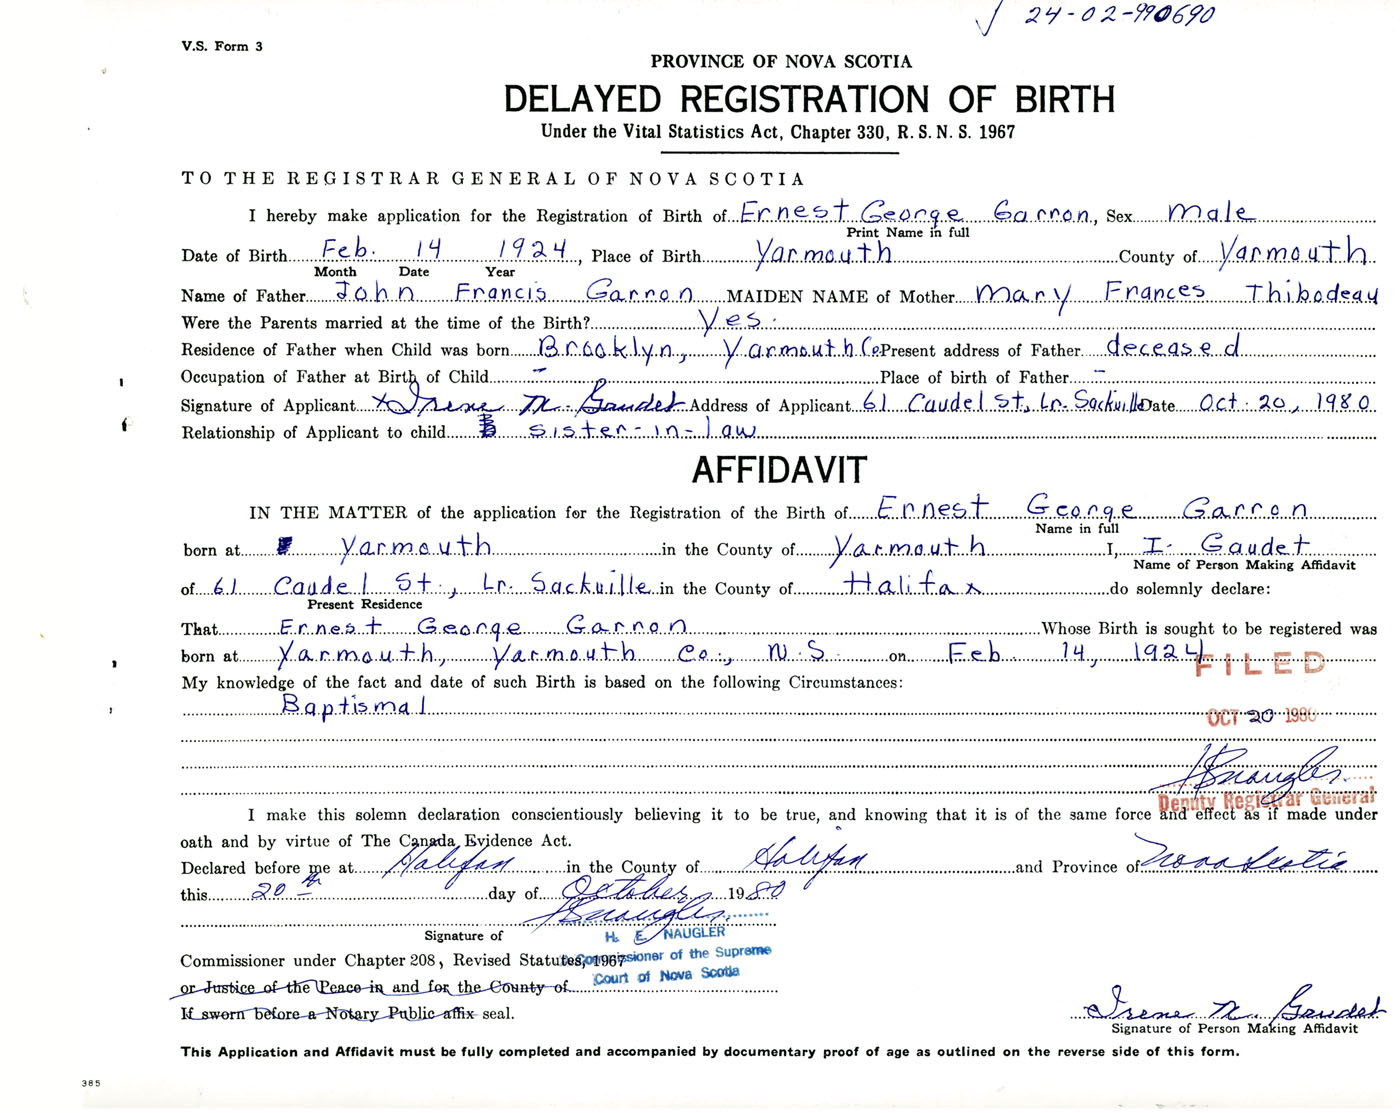 √ 24-02-990690
V.S. Form 3
PROVINCE OF NOVA SCOTIA
DELAYED REGISTRATION OF BIRTH
Under the Vital Statistics Act, Chapter 330, R.S.N.S. 1967
TO THE REGISTRAR GENERAL OF NOVA SCOTIA
I hereby make application for the Registration of Birth of Ernest George Garron, Sex Male
Print Name in full
Date of Birth Feb. 14 1924, Place of Birth Yarmouth County of Yarmouth
Month Date Year
Name of Father John Francis Garron MAIDEN NAME of Mother Mary Frances Thibodeau
Were the Parents married at the time of the Birth? Yes.
Residence of Father when Child was born Brooklyn, Yarmouth Co. Present address of Father deceased
Occupation of Father at Birth of Child - Place of birth of Father -
Signature of Applicant x Irene M. Gaudet Address of Applicant 61 Caudel St., Lr. Sackville Date Oct. 20, 1980
Relationship of Applicant to child sister-in-law
AFFIDAVIT
IN THE MATTER of the application for the Registration of the Birth of Ernest George Garron
Name in full
born at Yarmouth in the County of Yarmouth I, I. Gaudet
Name of Person Making Affidavit
of 61 Caudel St., Lr. Sackville in the County of Halifax do solemnly declare:
Present Residence
That Ernest George Garron Whose Birth is sought to be registered was
born at Yarmouth, Yarmouth Co., N.S. on Feb. 14, 1924
FILED
My knowledge of the fact and date of such Birth is based on the following Circumstances:
Baptismal
OCT 20 1980
HENaugler
Deputy Registrar General
I make this solemn declaration conscientiously believing it to be true, and knowing that it is of the same force and effect as if made under
oath and by virtue of The Canada Evidence Act.
Declared before me at Halifax in the County of Halifax and Province of Nova Scotia
this 20th day of October 1980
HENaugler
Signature of
H. E. NAUGLER
Commissioner under Chapter 208, Revised Statutes, 1967
a Commissioner of the Supreme
Court of Nova Scotia
or Justice of the Peace in and for the County of
If sworn before a Notary Public affix seal.
Irene M. Gaudet
Signature of Person Making Affidavit
This Application and Affidavit must be fully completed and accompanied by documentary proof of age as outlined on the reverse side of this form.
385